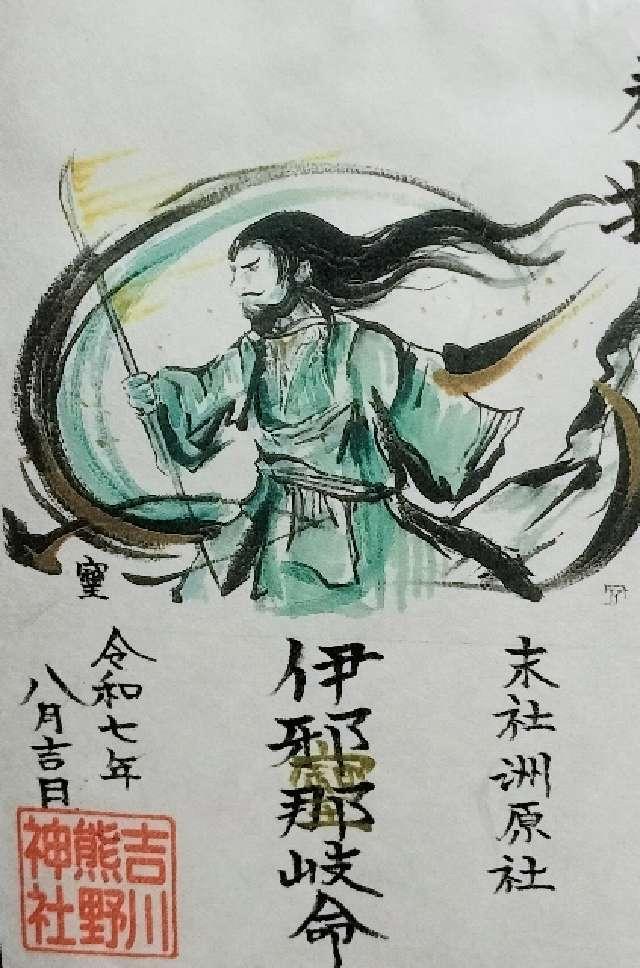 奉拝
末社洲原社
伊邪那岐命
令和七年
八月吉日
吉川
熊野
神社